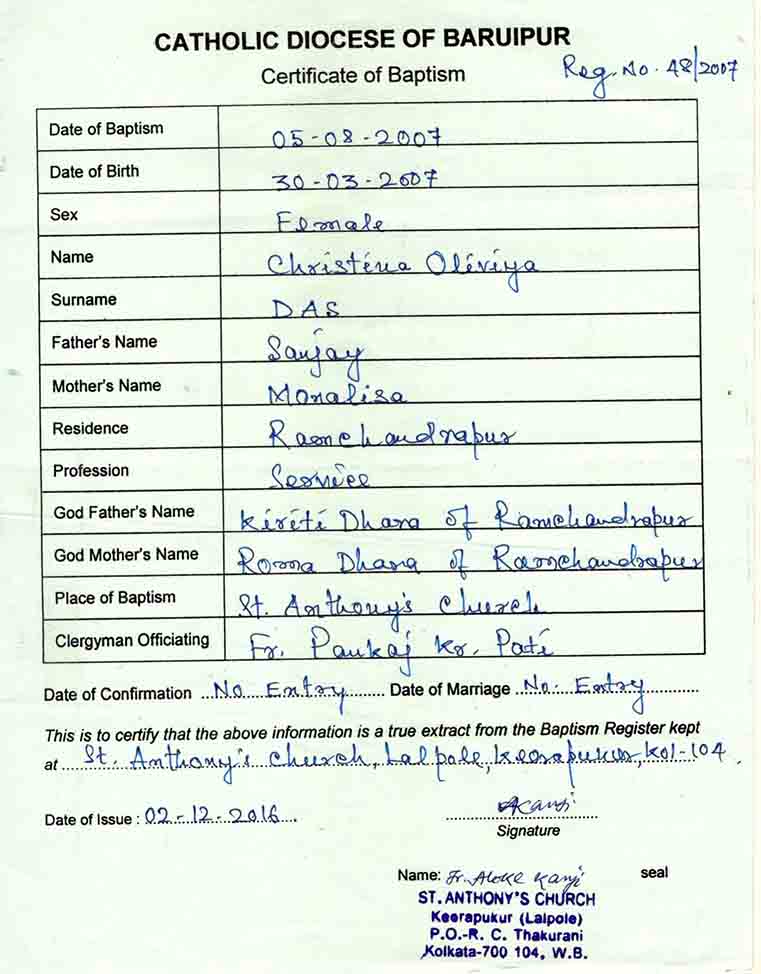 CATHOLIC DIOCESE OF BARUIPUR
Certificate of Baptism
Reg. No. 48/2007
Date of Baptism 05-08-2007
Date of Birth 30-03-2007
Sex Female
Name Christina Oliviya
Surname DAS
Father's Name Sanjay
Mother's Name Monalisa
Residence Ramchandrapur
Profession Service
God Father's Name Kiriti Dhara of Ramchandrapur
God Mother's Name Roma Dhara of Ramchandrapur
Place of Baptism St. Anthony's Church
Clergyman Officiating Fr. Pankaj Kr. Pati
Date of Confirmation ..No Entry......... Date of Marriage ..No. Entry.............
This is to certify that the above information is a true extract from the Baptism Register kept
at ....St. Anthony's Church, Lalpole, Keorapukur, Kol-104.
Date of Issue : 02-12-2016....
AKanji
Signature
Name: Fr. Aloke Kanji seal
ST. ANTHONY'S CHURCH
Keerapukur (Lalpole)
P.O.-R. C. Thakurani
Kolkata-700 104, W.B.